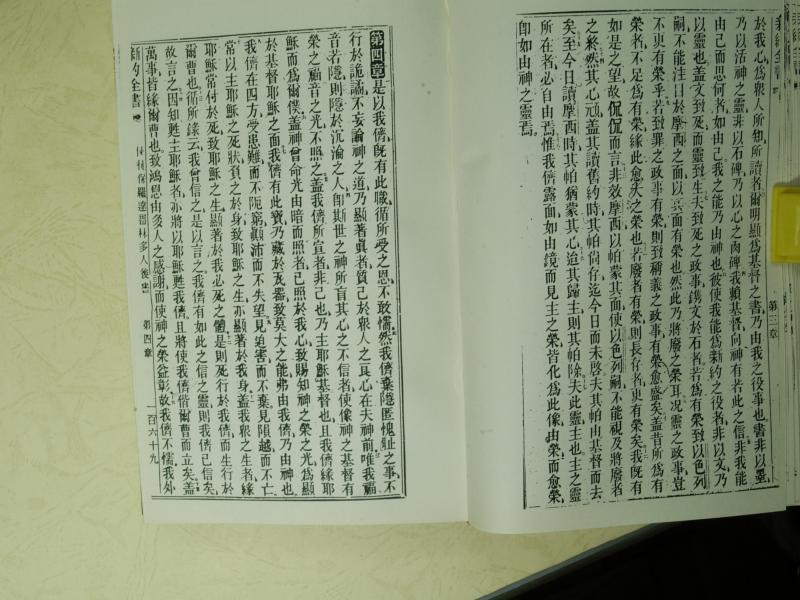 新約全書
第三章
於我心爲衆人所知所讀者爾明顯爲基督之書乃由我之役事也書非以墨
乃以活神之靈非以石碑乃以心之肉碑我賴基督向神有若此之信非我能
由己而思何者如由己我之能乃由神也彼使我能爲新約之役者非以文乃
以靈也蓋文致死而靈致生夫致死之政事鐫文於石者若爲有榮致以色列
嗣不能注目於摩西之面以其面有榮也然此乃將廢之榮耳况靈之政事豈
不更有榮乎若致罪之政事有榮則致稱義之政事有榮愈盛矣蓋昔所爲有
榮者不足爲有榮緣此愈大之榮也若廢者有榮則長存者更有榮矣我旣有
如是之望故侃侃而言非效摩西以帕蒙其面使以色列嗣不能視及將廢者
之終然其心頑蓋其讀舊約時其帕尙存迄今日而未啓夫其帕由基督而去
矣至今日讀摩西時其帕猶蒙其心迨其歸主則其帕除夫此靈主也主之靈
所在者必自由焉惟我儕露面如由鏡而見主之榮皆化爲此像由榮而愈榮
卽如由神之靈焉
第四章是以我儕旣有此職循所受之恩不敢懦然我儕棄隱匿愧恥之事不
行於詭譎不妄論神之道乃顯著眞者質己於衆人之良心在夫神前唯我福
音若隱則隱於沉淪之人卽斯世之神所盲其心之不信者使像神之基督有
榮之福音之光不照之蓋我儕所宣者非己也乃主耶穌基督也且我儕緣耶
穌而爲爾僕蓋神曾命光由暗而照者已照於我心致賜知神之榮之光爲顯
於基督耶穌之面我儕有此寶乃藏於瓦器致莫大之能弗由我儕乃由神也
我儕在四方受患難而不阨窮顚沛而不失望見迫害而不棄見隕越而不亡
常以主耶穌之死狀負之於身致耶穌之生亦顯著於我身蓋我衆之生者緣
耶穌常付於死致耶穌之生顯著於我必死之體是則死行於我儕而生行於
爾曹也循所錄云我曾信之是以言之我儕有如此之信之靈則我儕已信矣
故言之因知甦主耶穌者亦將以耶穌甦我儕且將使我儕偕爾曹而立矣蓋
萬事皆緣爾曹也致鴻恩由多人之感謝而使神之榮益彰故我儕不懦我外
新約全書
使徒保羅達哥林多人後書
第四章
一百六十九